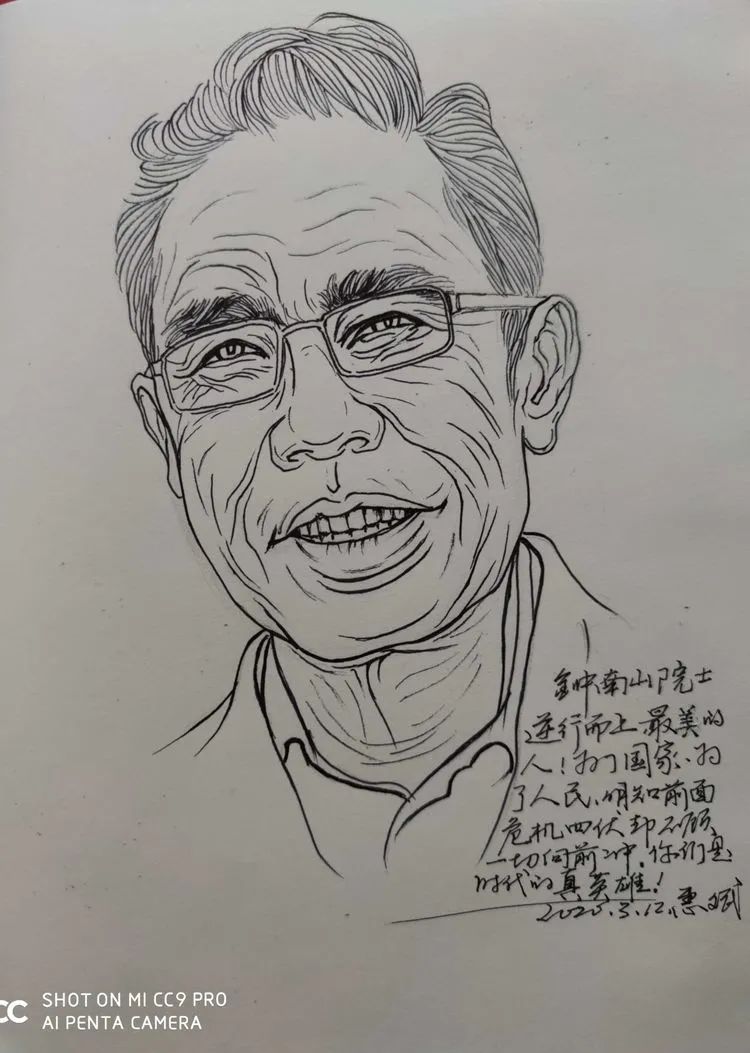 钟南山院士
逆行而上最美的
人!为了国家、为
了人民、明知前面
危机四伏却不顾
一切向前冲,你们是
时代的真英雄!
2020.3.12.惠斌
SHOT ON MI CC9 PRO
AI PENTA CAMERA